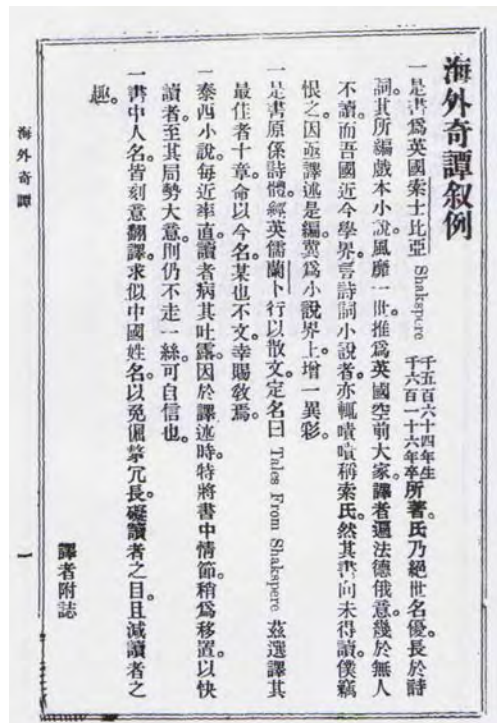 海外奇譚叙例
一是書爲英國索士比亞 Shakspere 千五百六十四年生千六百一十六年卒所著。氏乃絕世名優。長於詩
詞其所編戲本小說。風靡一世。推爲英國空前大家。譯者遍法德俄意。幾於無人
不讀。而吾國近今學界。言詩詞小說者。亦輒嘖嘖稱索氏。然其書向未得讀。僕竊
恨之。因亟譯述是編。冀爲小說界上增一異彩。
一是書原係詩體。經英儒蘭卜行以散文。定名曰 Tales From Shakspere 茲選譯其
最佳者十章。命以今名。某也不文。幸賜敎焉。
一泰西小說。每近率直。讀者病其吐露。因於譯述時。特將書中情節。稍爲移置。以快
讀者。至其局勢大意。則仍不走一絲。可自信也。
一書中人名。皆刻意翻譯。求似中國姓名。以免冗長。礙讀者之目。且減讀者之
趣。
譯者附誌
海外奇譚
一